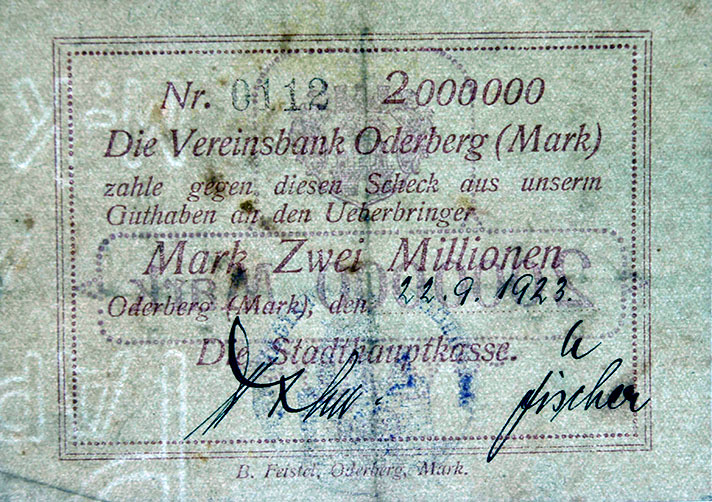 Nr. 0112 2000000
Die Vereinsbank Oderberg (Mark)
zahle gegen diesen Scheck aus unserm
Guthaben an den Ueberbringer
Mark Zwei Millionen
Oderberg (Mark), den 22.9.1923.
Die Stadthauptkasse.
Fischer
B. Feistel, Oderberg, Mark.